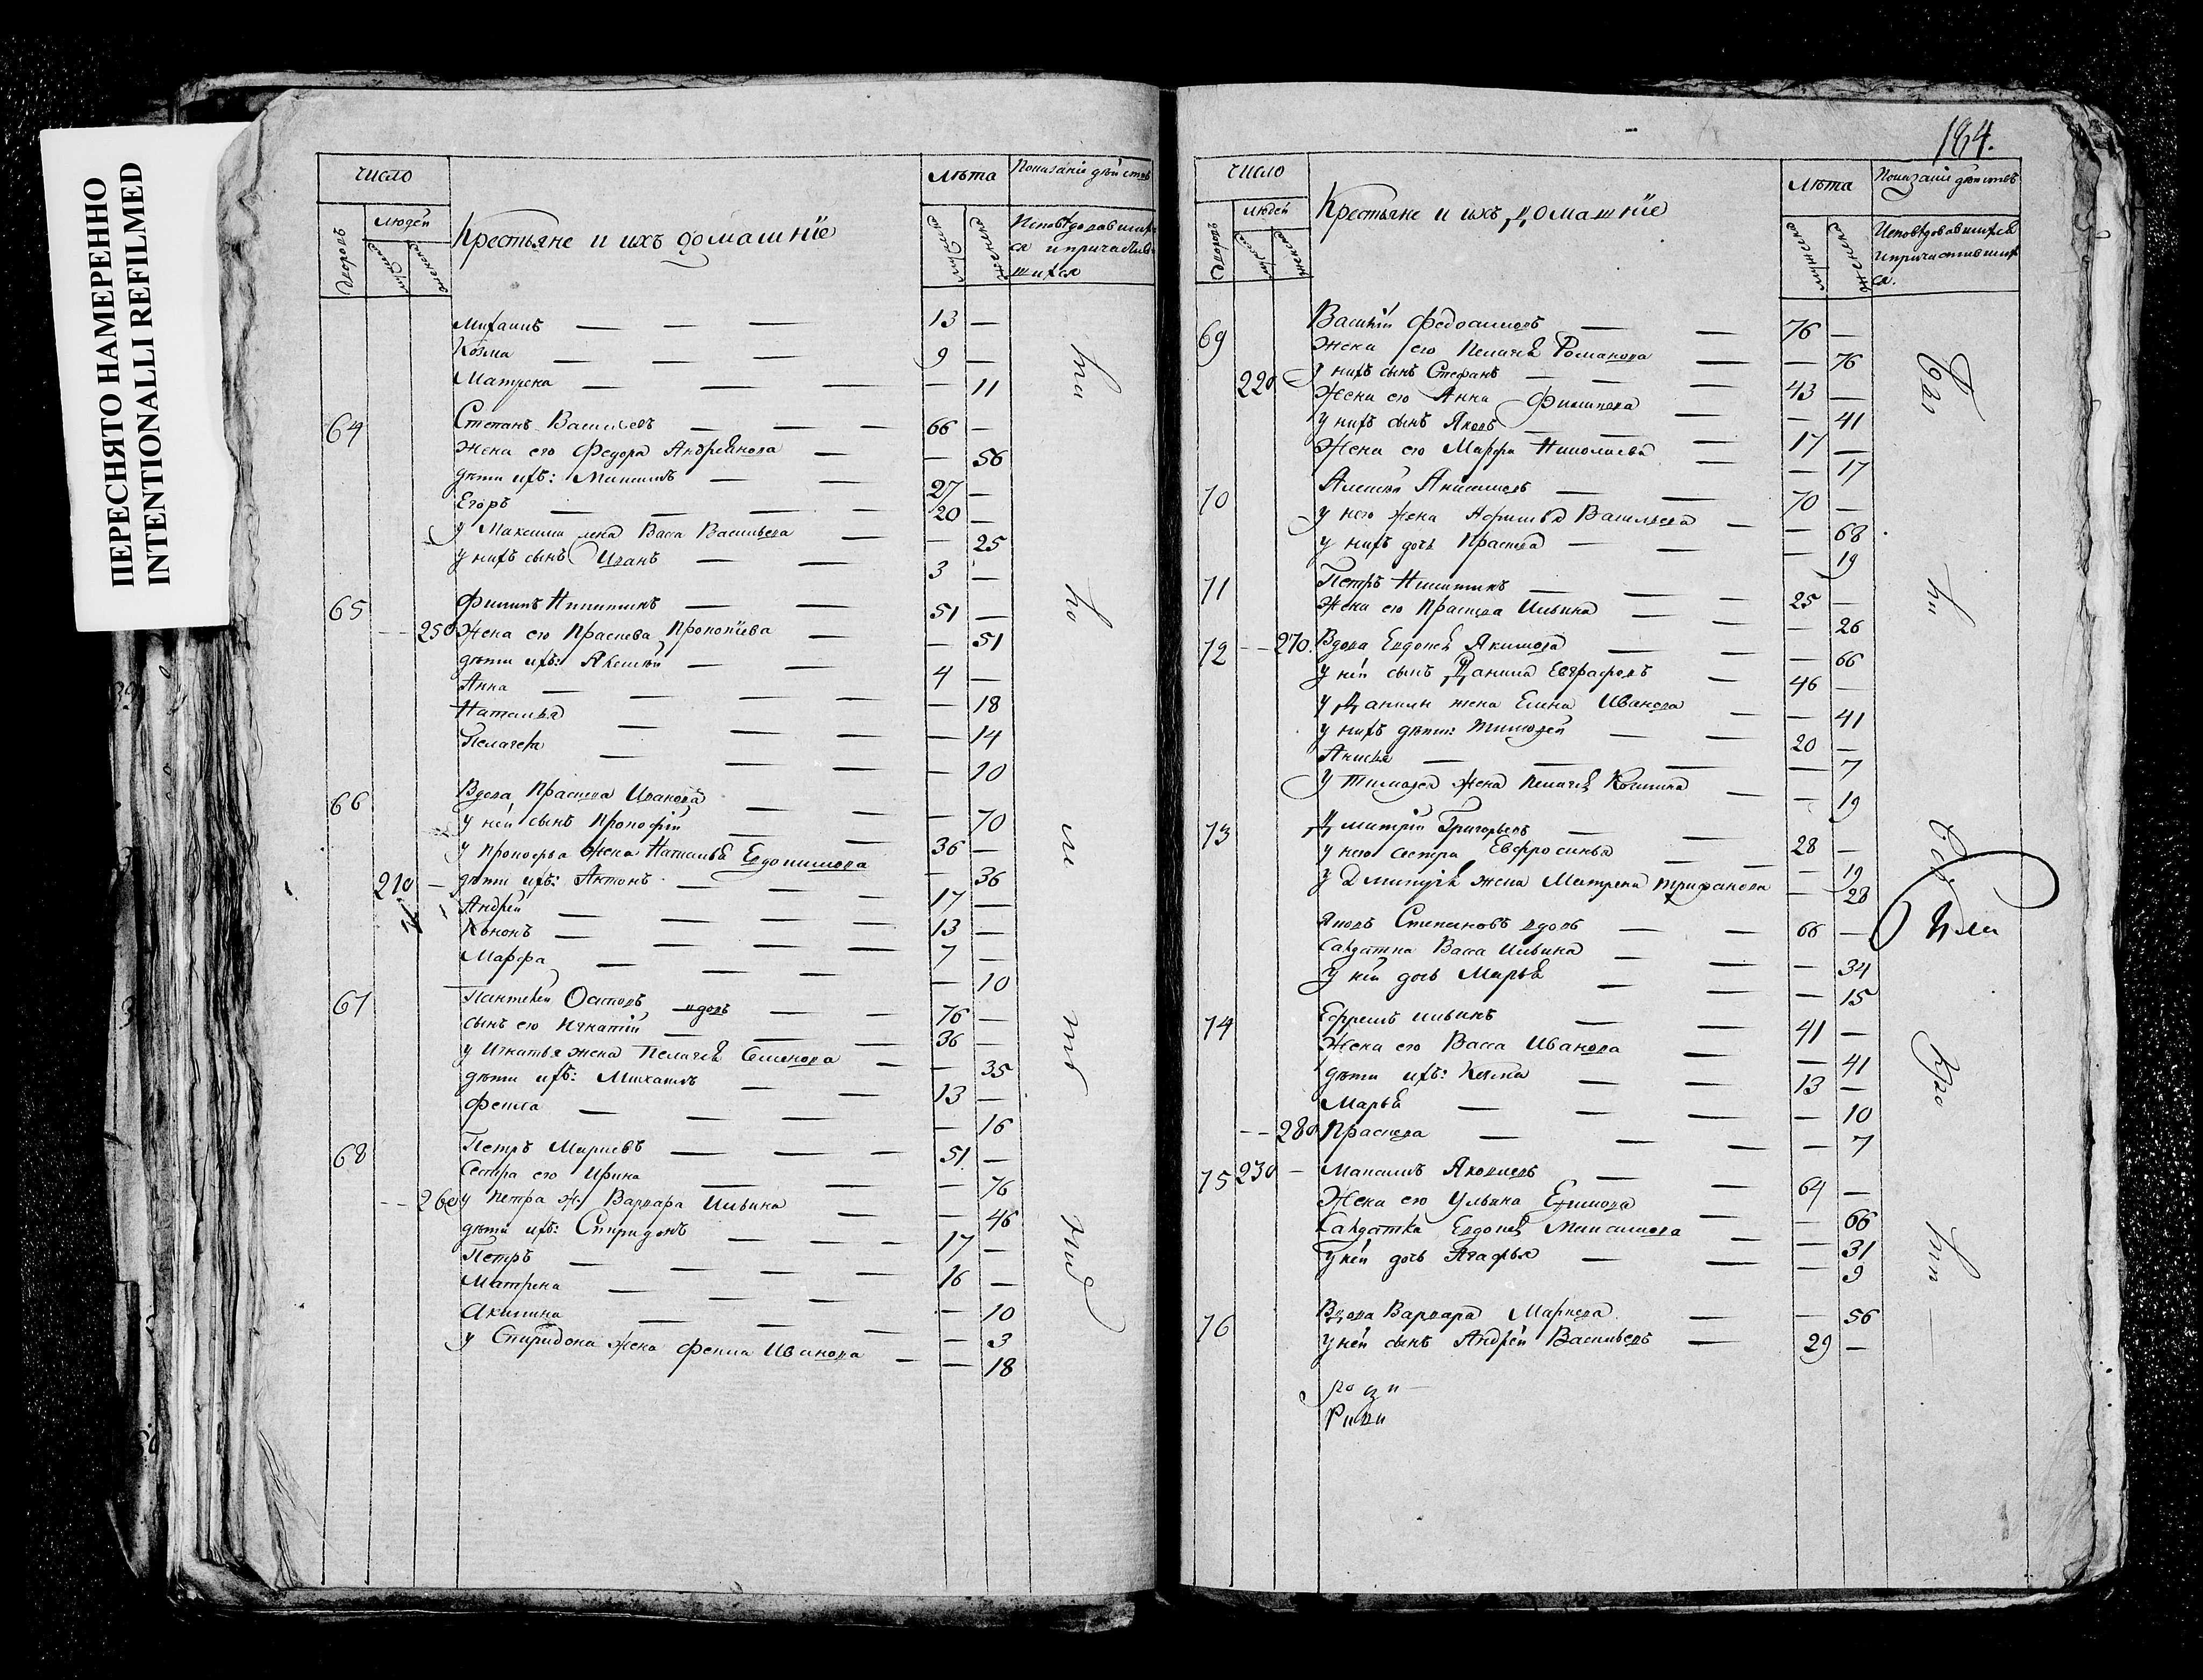 ПЕРЕСНЯТО НАМЕРЕННО
INTENTIONALLI REFILMED
число
людей
дворовъ
мужеска
женска
Крестьяне и ихъ домашніе
лѣта
мужеска
женска
Показаніе дѣйствъ
Исповѣдовавших
ся и причастив
шихся
Михаилъ — — — 13 —
Козма — — — 9 —
Матрена — — — — 11
64 Степанъ Васильевъ — — — 66 —
Жена его Федора Андреянова — — 56
дѣти ихъ: Максимъ — 27 —
Егоръ — — — — 20 —
у Максима жена Васса Васильева — — 25
у нихъ сынъ Иванъ — — 3 —
65 Филипъ Никитинъ — — 51 —
250 Жена его Праскева Прокопіева — — 51
дѣти ихъ: Алексѣй — — 4 —
Анна — — — — — 18
Наталья — — — — 14
Пелагея — — — — 10
66 Вдова Праскева Иванова — — — 70
у ней сынъ Прокофій — — 36 —
у Прокофья жена Наталья Евдокимова — 36
210 — дѣти ихъ: Антонъ — — — 17 —
Андрей — — — — 13 —
Кононъ — — — — 7 —
Марфа — — — — 10
67 Пантелей Осиповъ вдовъ — — 76 —
сынъ его Игнатій — — — 36 —
у Игнатья жена Пелагея Семенова — — 35
дѣти ихъ: Михаилъ — — 13 —
Фекла — — — — 16
68 Петръ Марковъ — — — 51 —
Сестра его Ирина — — — 76
260 у Петра ж. Варвара Ильина — — 46
дѣти ихъ: Спиридонъ — — — 17 —
Петръ — — — — 16 —
Матрена — — — — 10
Акилина — — — — 3
у Спиридона жена Фекла Иванова — — 18
164.
число
людей
дворовъ
мужеска
женска
Крестьяне и ихъ домашніе
лѣта
мужеска
женска
Показаніе дѣйствъ
Исповѣдовавшихся
и причастивших
ся.
69 Василій Федосимовъ — — 76 —
Жена его Пелагея Романова — — 76
220 у нихъ сынъ Стефанъ — — — 43 —
Жена его Анна Филипова — — 41
у нихъ сынъ Яковъ — — — 17 —
Жена его Марфа Николаева — — 17
70 Алексѣй Анисимовъ — — 70 —
у него жена Афимья Васильева — — 68
у нихъ дочь Праскева — — — 19
71 Петръ Никитинъ — — — 25 —
Жена его Праскева Ильина — — — 26
72 270. Вдова Евдокея Якимова — — — 66
у ней сынъ Данила Евграфовъ — 46 —
у Данилы жена Елена Иванова — — 41
у нихъ дѣти: Тимофей — — 20 —
Анисья — — — — 7
у Тимофея жена Пелагея Козмина — — 19
73 Дмитрій Григорьевъ — — 28 —
у него сестра Евфросинья — — — 19
у Дмитрія жена Матрена Трифанова — 28
Яковъ Степановъ вдовъ — — 66 —
Салдатка Васса Ильина — — — 34
у ней дочь Марья — — — 15
74 Ефремъ Ильинъ — — 41 —
Жена его Васса Иванова — — 41
дѣти ихъ: Козма — — 13 —
Марья — — — — 10
280 Праскева — — — — 7
75 230 — Максимъ Яковлевъ — — 64 —
Жена его Ульяна Ефимова — — 66
Салдатка Евдокея Максимова — — 31
у ней дочь Агафья — — — 9
76 Вдова Варвара Маркова — — 56
у ней сынъ Андрей Васильевъ — — 29 —